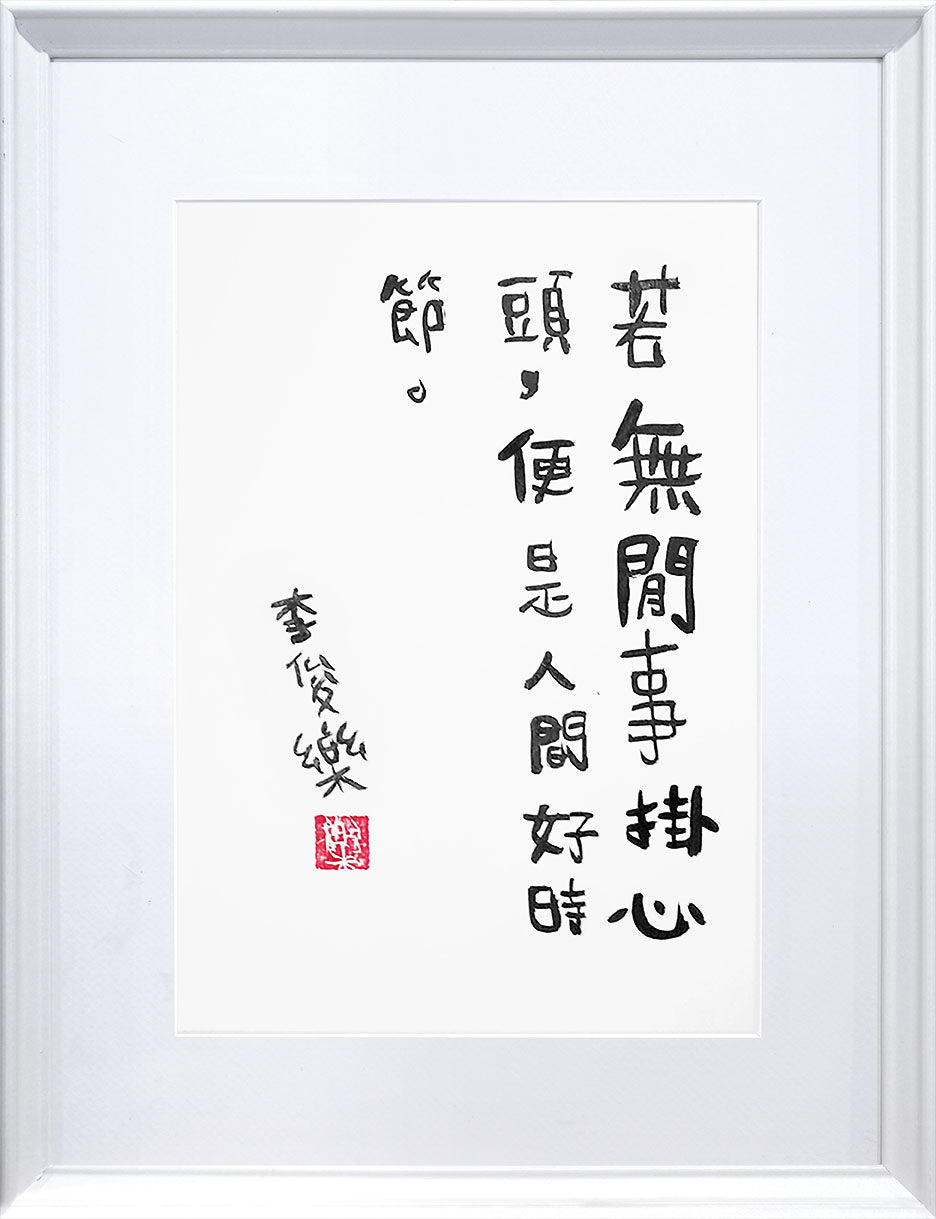 若無閒事掛心
頭，便是人間好時
節。
李俊樂